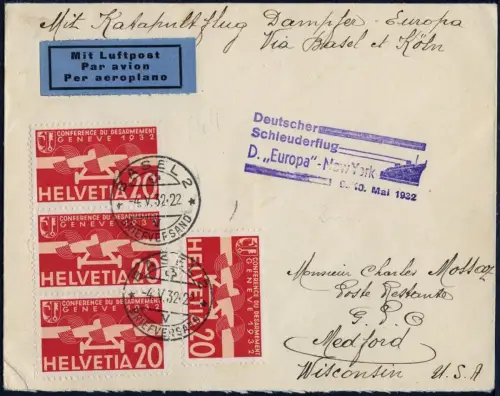 Mit Katapultflug Dampfer-Europa
Via Basel et Köln
Mit Luftpost
Par avion
Per aeroplano
CONFERENCE DU DESARMEMENT
GENEVE 1932
HELVETIA 20
CONFERENCE DU DESARMEMENT
GENEVE 1932
HELVETIA 20
CONFERENCE DU DESARMEMENT
GENEVE 1932
HELVETIA 20
CONFERENCE DU DESARMEMENT
GENEVE 1932
HELVETIA 20
BASEL 2
-4.V.32-22
BRIEFVERSAND
-4.V.32-2
BRIEFVERSAND
Deutscher
Schleuderflug
D. „Europa"-New York
9./10. Mai 1932
Monsieur Charles Mossaz
Poste Restante
Medford
Wisconsin U.S.A